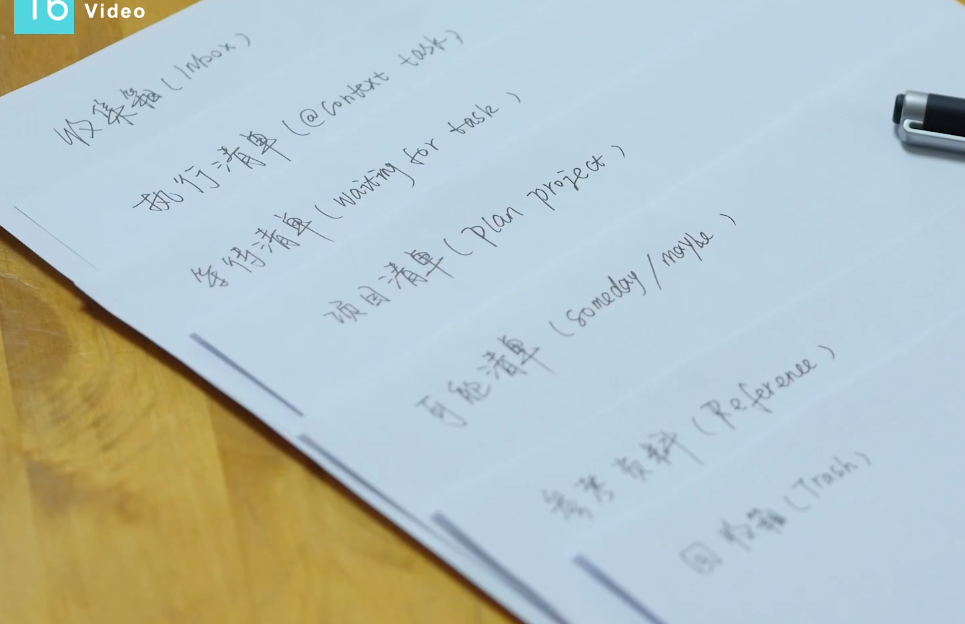 16 Video
收集箱(Inbox)
执行清单(@Context task)
等待清单(Waiting for task)
项目清单(plan project)
可能清单(Someday/maybe)
参考资料(Reference)
回收箱(Trash)